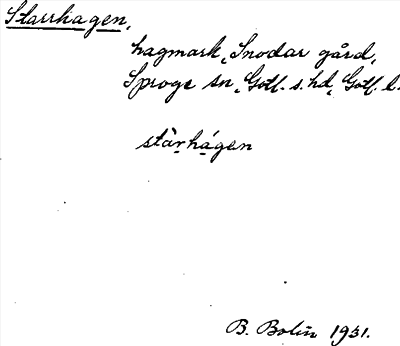 Starrhagen,
hagmark, Snodar gård,
Sproge sn, Gotl. s. hd, Gotl. l.
stàrhágen
B. Bolin 1931.